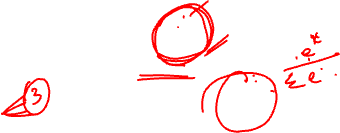 3
e^x
Σ e